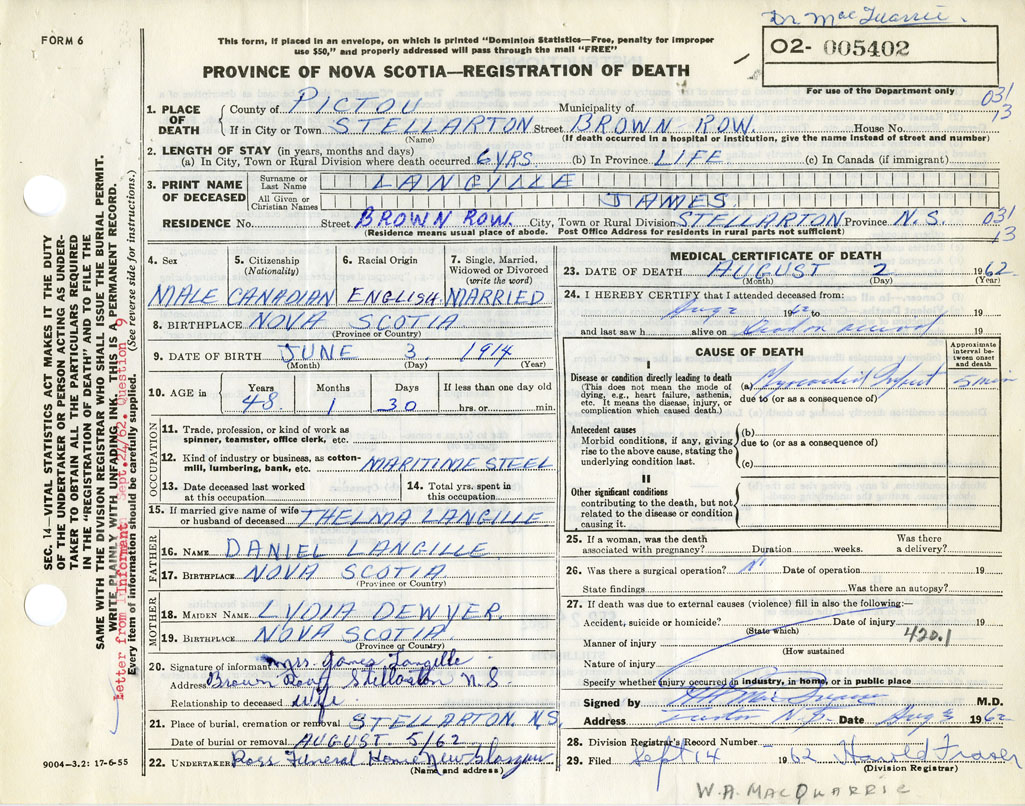 Dr MacQuarrie.
FORM 6
This form, if placed in an envelope, on which is printed "Dominion Statistics—Free, penalty for improper
use $50," and properly addressed will pass through the mail "FREE"
02- 005402
For use of the Department only
PROVINCE OF NOVA SCOTIA—REGISTRATION OF DEATH
031
13
1. PLACE OF DEATH
County of PICTOU Municipality of
If in City or Town STELLARTON Street BROWN ROW. House No.
(Name) (If death occurred in a hospital or institution, give the name instead of street and number)
2. LENGTH OF STAY (in years, months and days)
(a) In City, Town or Rural Division where death occurred 6 YRS. (b) In Province LIFE (c) In Canada (if immigrant)
3. PRINT NAME OF DECEASED
Surname or Last Name LANGILLE
All Given or Christian Names JAMES
RESIDENCE No. Street BROWN ROW. City, Town or Rural Division STELLARTON Province N.S.
(Residence means usual place of abode. Post Office Address for residents in rural parts not sufficient)
031
13
4. Sex
MALE
5. Citizenship
(Nationality)
CANADIAN
6. Racial Origin
ENGLISH
7. Single, Married,
Widowed or Divorced
(write the word)
MARRIED
8. BIRTHPLACE NOVA SCOTIA
(Province or Country)
9. DATE OF BIRTH JUNE 3. 1914
(Month) (Day) (Year)
10. AGE in
Years 48
Months 1
Days 30
If less than one day old
hrs. or min.
OCCUPATION
11. Trade, profession, or kind of work as
spinner, teamster, office clerk, etc.
12. Kind of industry or business, as cotton-
mill, lumbering, bank, etc. MARITIME STEEL
13. Date deceased last worked
at this occupation
14. Total yrs. spent in
this occupation
15. If married give name of wife
or husband of deceased THELMA LANGILLE
FATHER
16. NAME DANIEL LANGILLE
17. BIRTHPLACE NOVA SCOTIA
(Province or Country)
MOTHER
18. MAIDEN NAME LYDIA DEWYER.
19. BIRTHPLACE NOVA SCOTIA
(Province or Country)
20. Signature of informant Mrs. James Langille
Address Brown Row Stellarton N.S.
Relationship to deceased wife
21. Place of burial, cremation or removal STELLARTON, N.S.
Date of burial or removal AUGUST 5/62
22. UNDERTAKER Ross Funeral Home New Glasgow
(Name and address)
MEDICAL CERTIFICATE OF DEATH
23. DATE OF DEATH AUGUST 2 1962
(Month) (Day) (Year)
24. I HEREBY CERTIFY that I attended deceased from:
Aug 2 1962 to 19
and last saw h alive on Dead on arrival 19
CAUSE OF DEATH
Approximate
interval be-
tween onset
and death
I
Disease or condition directly leading to death
(This does not mean the mode of
dying, e.g., heart failure, asthenia,
etc. It means the disease, injury, or
complication which caused death.)
(a) Myocardial Infarct 5 min
due to (or as a consequence of)
Antecedent causes
Morbid conditions, if any, giving
rise to the above cause, stating the
underlying condition last.
(b)
due to (or as a consequence of)
(c)
II
Other significant conditions
contributing to the death, but not
related to the disease or condition
causing it.
25. If a woman, was the death
associated with pregnancy? Duration weeks. Was there
a delivery?
26. Was there a surgical operation? No Date of operation 19
State findings Was there an autopsy?
27. If death was due to external causes (violence) fill in also the following:—
Accident, suicide or homicide? Date of injury 19
(State which)
420.1
Manner of injury
(How sustained
Nature of injury
Specify whether injury occurred in industry, in home, or in public place
Signed by M.D.
Address Date Aug 3 1962
28. Division Registrar's Record Number
29. Filed Sept 14 1962 Harold Fraser
(Division Registrar)
W.A. MACQUARRIE
9004—3.2: 17-6-55
SEC. 14—VITAL STATISTICS ACT MAKES IT THE DUTY
OF THE UNDERTAKER OR PERSON ACTING AS UNDER-
TAKER TO OBTAIN ALL THE PARTICULARS REQUIRED
IN THE "REGISTRATION OF DEATH" AND TO FILE THE
SAME WITH THE DIVISION REGISTRAR WHO SHALL ISSUE THE BURIAL PERMIT.
WRITE PLAINLY WITH UNFADING INK. THIS IS A PERMANENT RECORD.
Letter from Informant Sept. 24/62. Question 9
Every item of information should be carefully supplied. (See reverse side for instructions.)